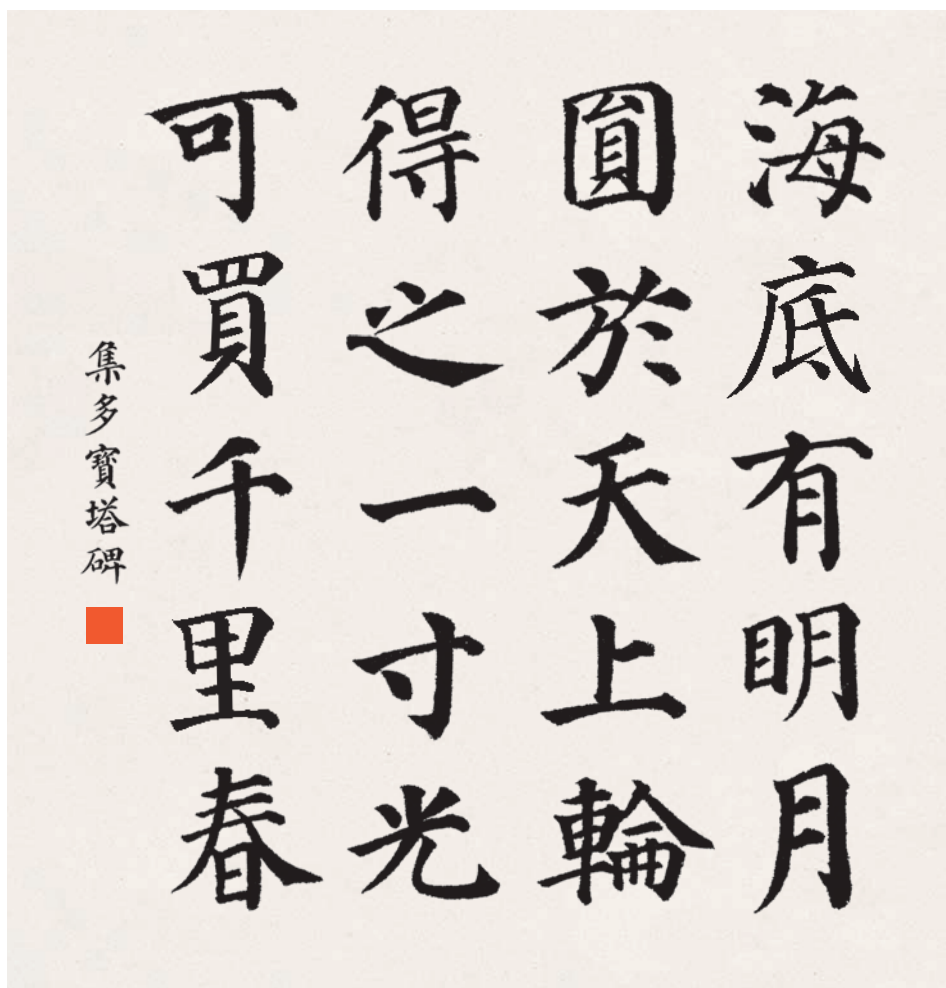 海底有明月
圓於天上輪
得之一寸光
可買千里春
集多寶塔碑